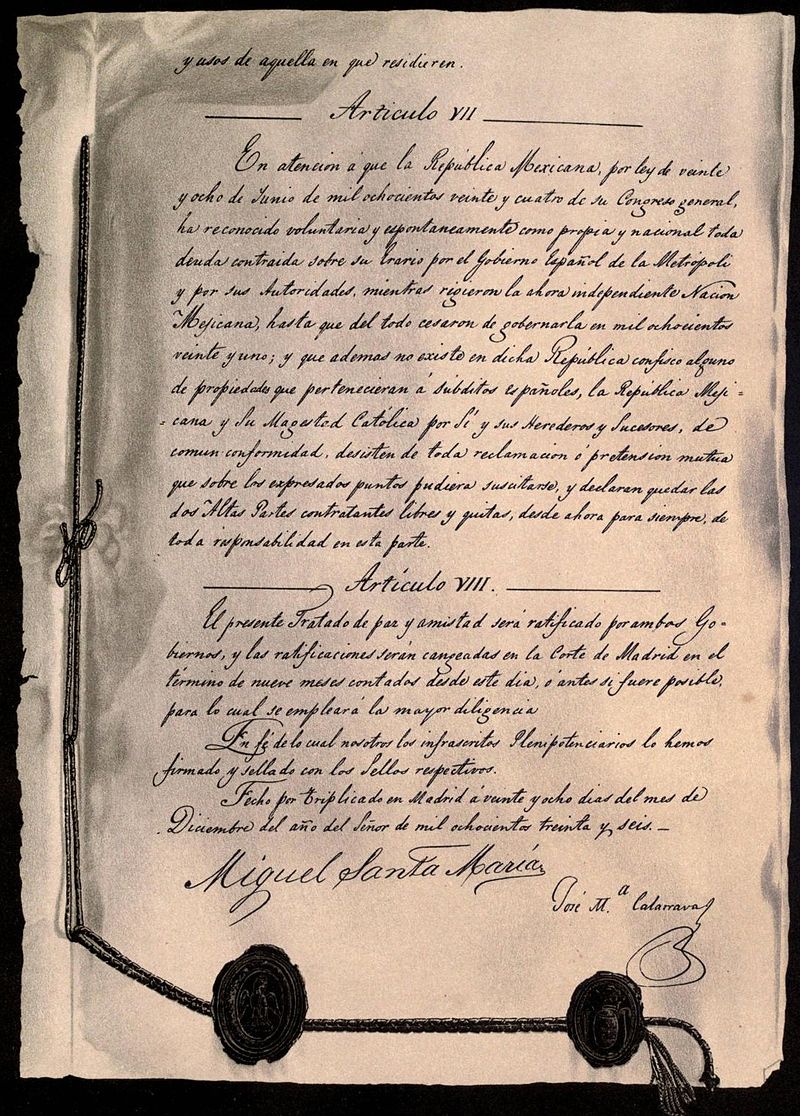 y usos de aquella en que residieren.
Artículo VII
En atencion á que la República Mexicana, por ley de veinte
y ocho de Junio de mil ochocientos veinte y cuatro de su Congreso general,
ha reconocido voluntaria y espontaneamente como propia y nacional toda
deuda contraida sobre su Erario por el Gobierno Español de la Metrópoli
y por sus Autoridades, mientras rigieron la ahora independiente Nacion
Mejicana, hasta que del todo cesaron de gobernarla en mil ochocientos
veinte y uno; y que ademas no existe en dicha República confisco alguno
de propiedades que pertenecieran á súbditos españoles, la República Meji-
-cana y Su Magestad Católica por Sí y sus Herederos y Sucesores, de
comun conformidad, desisten de toda reclamacion ó pretension mutua
que sobre los expresados puntos pudiera suscitarse, y declaran quedar las
dos Altas Partes contratantes libres y quitas, desde ahora para siempre, de
toda responsabilidad en esta parte.
Artículo VIII.
El presente Tratado de paz y amistad será ratificado por ambos Go-
biernos, y las ratificaciones serán cangeadas en la Corte de Madrid en el
término de nueve meses contados desde este dia, o antes si fuere posible,
para lo cual se empleará la mayor diligencia
En fé de lo cual nosotros los infrascritos Plenipotenciarios lo hemos
firmado y sellado con los Sellos respectivos.
Fecho por triplicado en Madrid á veinte y ocho dias del mes de
Diciembre del año del Señor de mil ochocientos treinta y seis. —
Miguel Santa María
José M.ª Calatrava